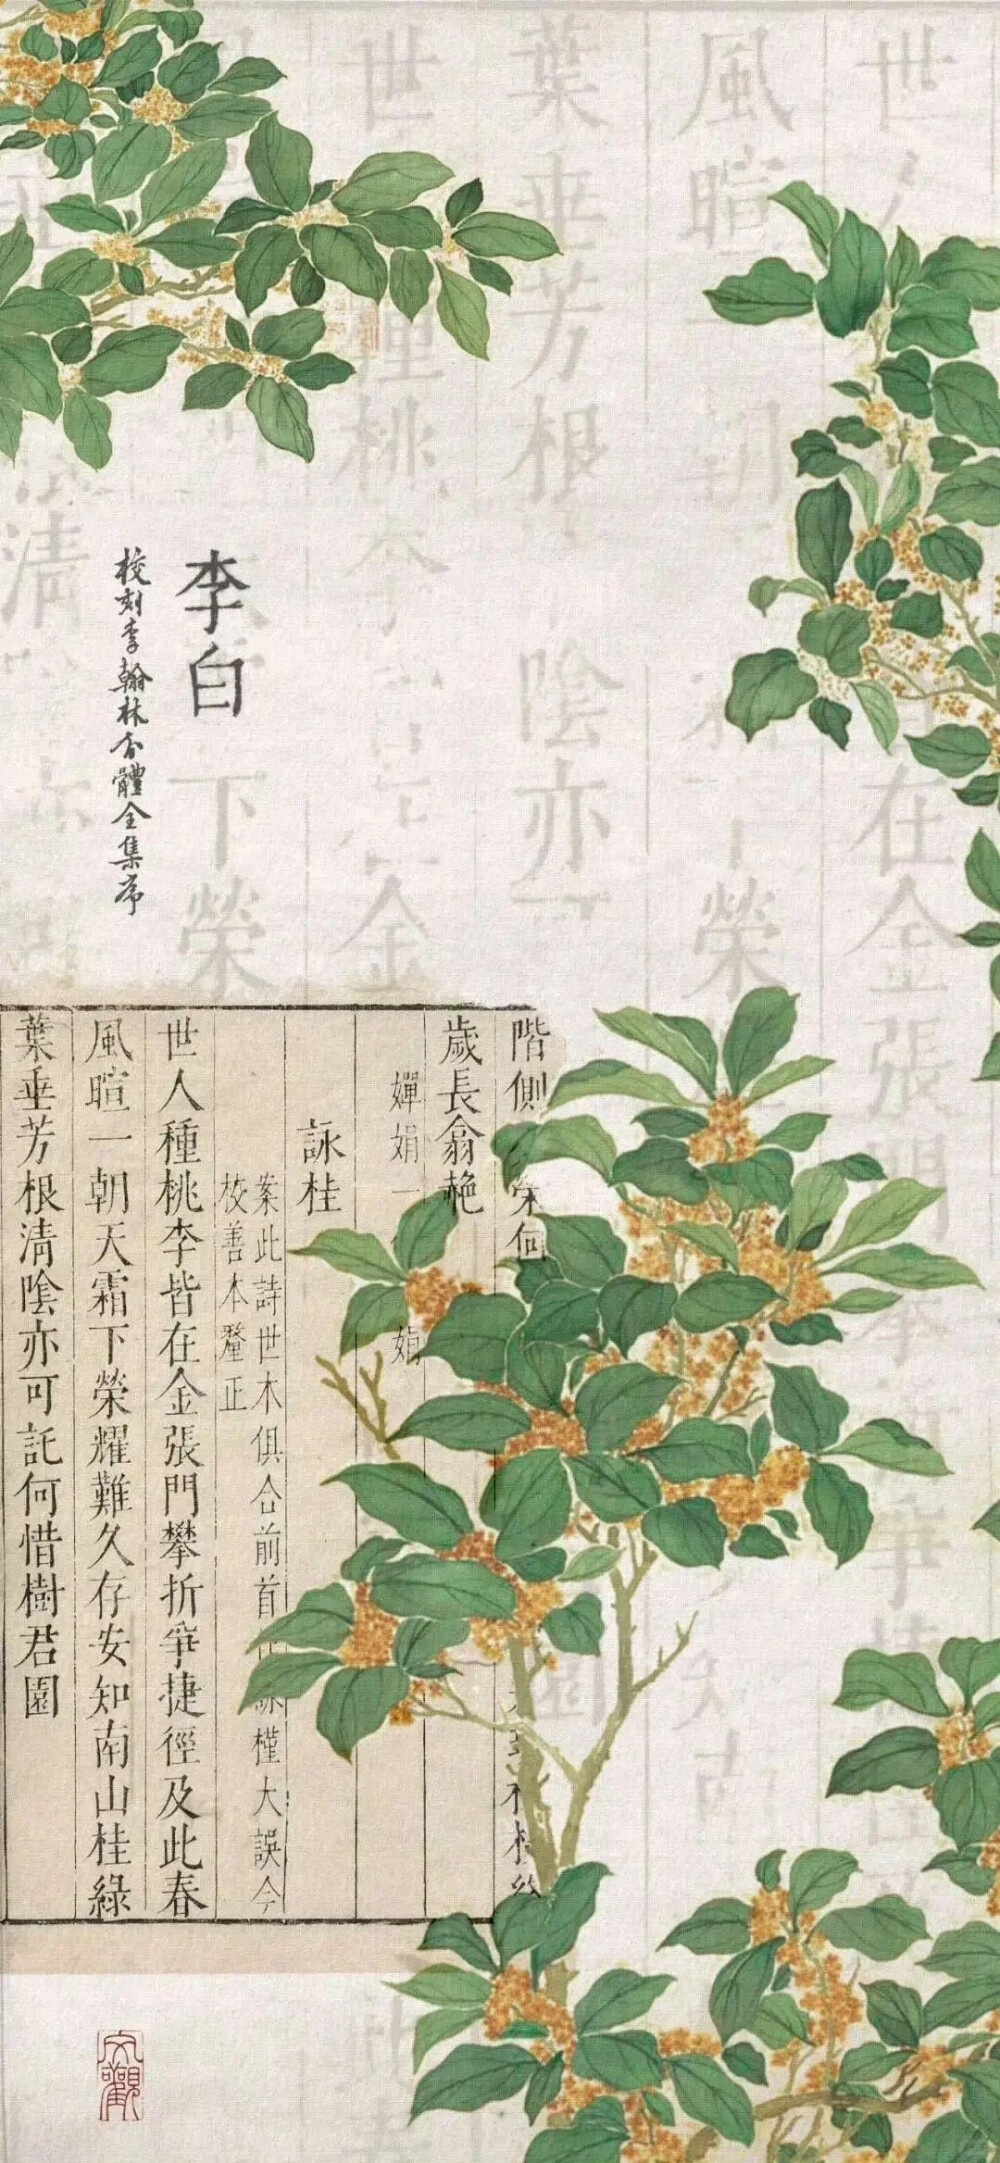 李白
校刻李翰林分體全集序
階側
歲長翁艷
嬋娟一
娟
詠桂
案此詩世本俱合前首
詠槿大誤今
校善本釐正
世人種桃李皆在金張門攀折爭捷徑及此春
風暄一朝天霜下榮耀難久存安知南山桂綠
葉垂芳根清陰亦可託何惜樹君園